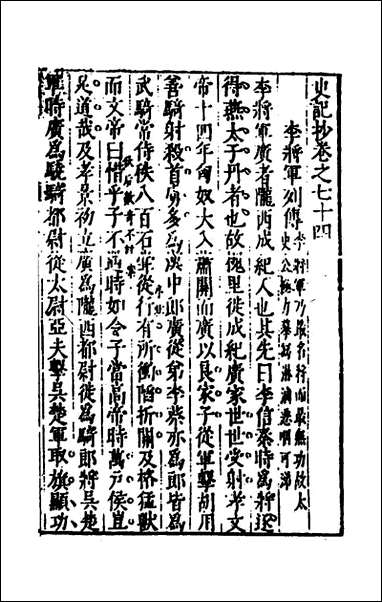 史記抄卷之七十四
李將軍列傳
李將軍乃最名將而最無功故太
史公極力摹寫淋漓悲咽可涕
李將軍廣者隴西成紀人也其先曰李信秦時爲將逐
得燕太子丹者也故槐里徙成紀廣家世世受射孝文
帝十四年匈奴大入蕭關而廣以良家子從軍擊胡用
善騎射殺首虜多爲漢中郎廣從弟李蔡亦爲郎皆爲
武騎常侍秩八百石嘗從行有所衝陷折關及格猛獸
而文帝曰惜乎子不遇時如令子當高帝時萬戶侯豈
足道哉及孝景初立廣爲隴西都尉徙爲騎郎將吳楚
軍時廣爲驍騎都尉從太尉亞夫擊吳楚軍取旗顯功